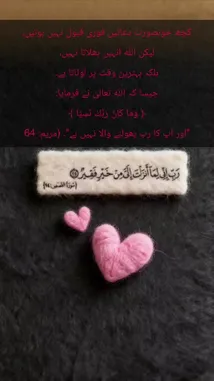 کچھ خوبصورت دعائیں فوراً قبول نہیں ہوتیں،
لیکن اللہ انہیں بھلاتا نہیں،
بلکہ بہترین وقت پر لوٹاتا ہے۔
جیسا کہ اللہ تعالیٰ نے فرمایا:
﴿ وَمَا كَانَ رَبُّكَ نَسِيًّا ﴾
"اور آپ کا رب بھولنے والا نہیں ہے"۔ (مریم: 64)
رَبِّ إِنِّي لِمَا أَنزَلْتَ إِلَيَّ مِنْ خَيْرٍ فَقِيرٌ